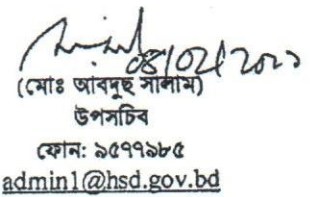 08/02/2023
(মোঃ আবদুছ সালাম)
উপসচিব
ফোন: ৯৫৭৭৯৮৫
admin1@hsd.gov.bd